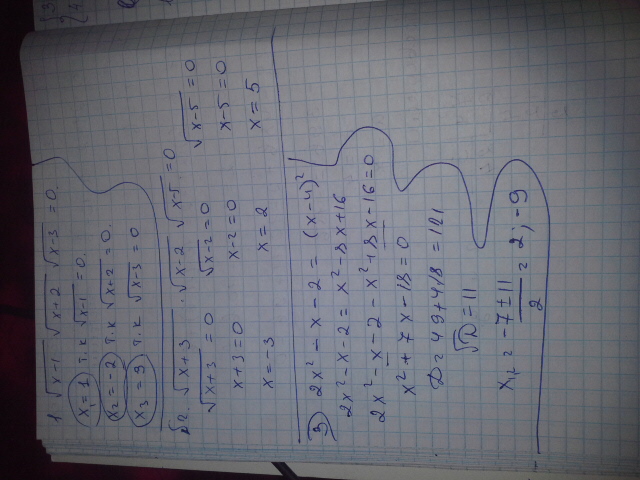 1 √x-1 √x+2 √x-3 = 0.
x₁=1 т.к √x-1 = 0.
x₂=-2 т.к √x+2 = 0.
x₃=3 т.к √x-3 = 0
√2. √x+3 · √x-2 √x-5 = 0
√x+3 = 0 √x-2 = 0 √x-5 = 0
x+3=0 x-2=0 x-5=0
x=-3 x=2 x=5
3) 2x²-x-2 = (x-4)²
2x²-x-2 = x²-8x+16
2x²-x-2-x²+8x-16=0
x²+7x-18=0
D=49+4·18=121
√D=11
x₁,₂ = -7±11/2 = 2; -9